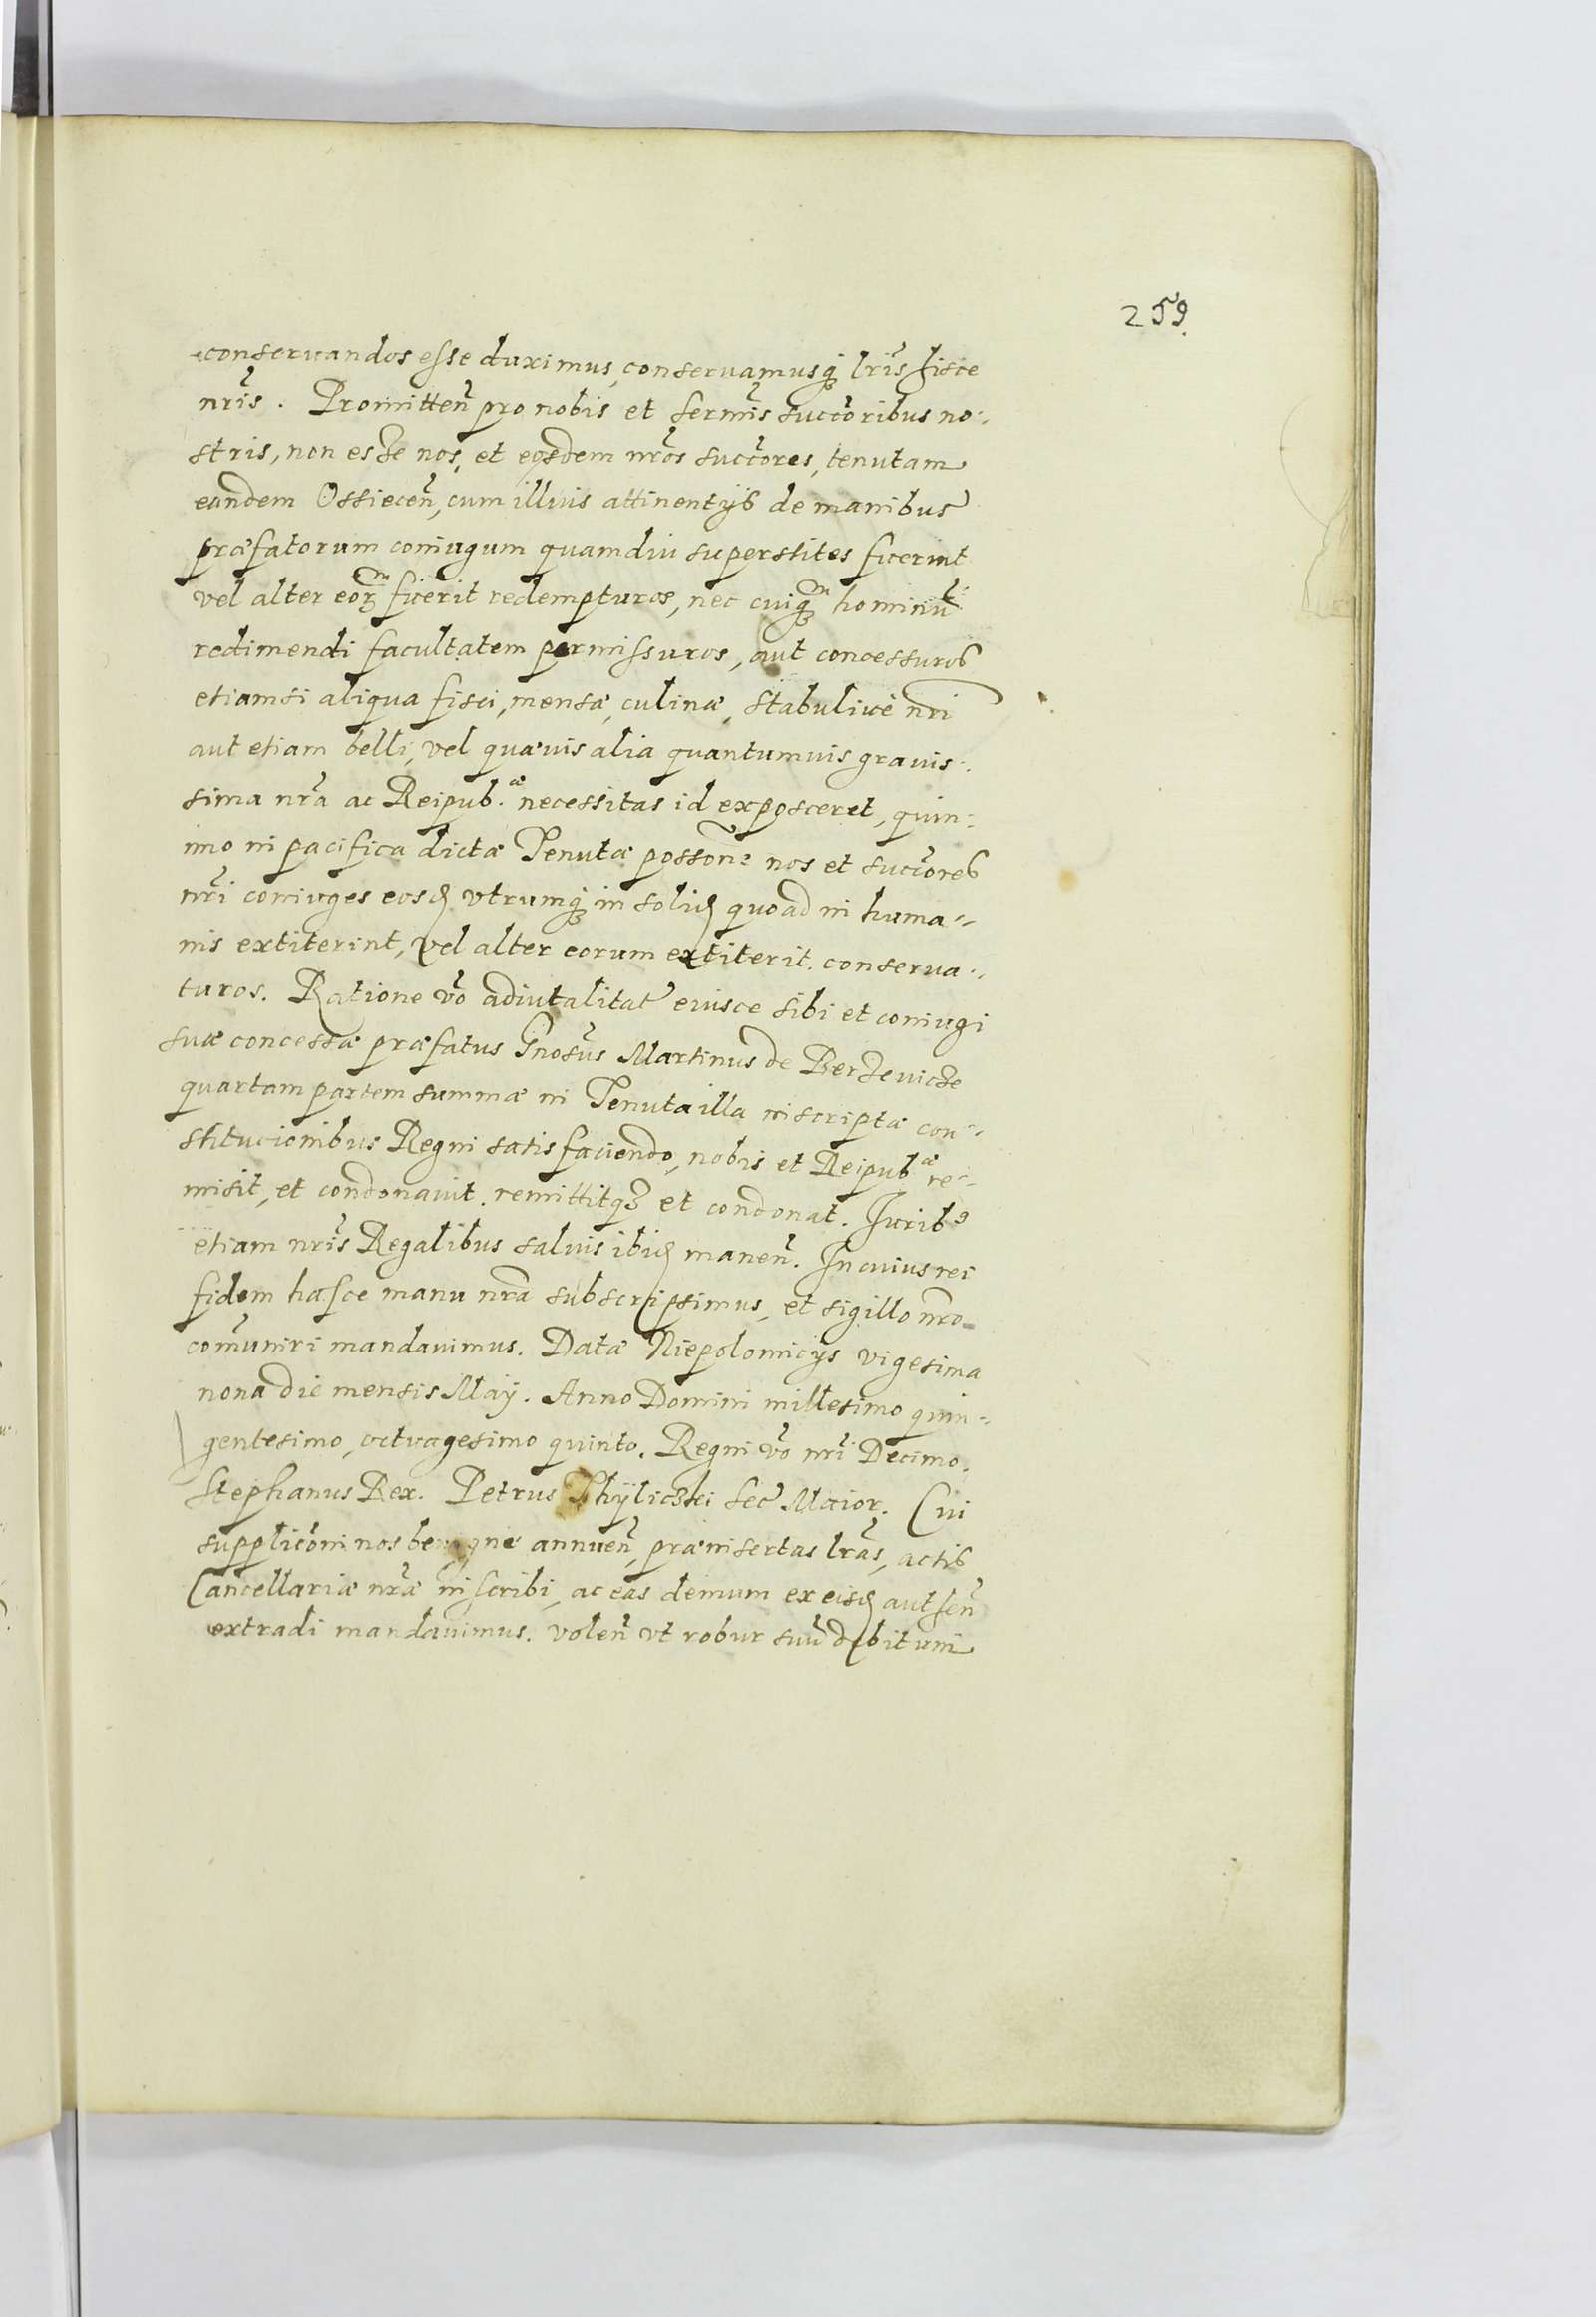 259.
conseruandos esse duximus, conseruamusq́ꝫ lrĩs hisce
nrĩs. Promitteñ pro nobis et Sermĩs succõribus no-
stris, non esse nos, et eosdem nrõs succõres, tenutam
eandem Ossieceñ, cum illius attinentijs de manibus
præfatorum coniugum quamdiu superstites fuerint
vel alter eorꝫ fuerit redempturos, nec cuiqꝫ hominũ
redimendi facultatem permissuros, aut concessuros
etiamsi aliqua fisci, mensæ, culinæ, stabuliue nrĩ
aut etiam belli, vel quæuis alia quantumuis grauis-
sima nrã ac Reipub.æ necessitas id exposceret, quin-
imo in pacifica dictæ Tenutæ possone nos et succõres
nrĩ coniuges eosꝺ vtrumqꝫ in soliꝺ quoad in huma-
nis extiterint, vel alter eorum extiterit. conserua-
turos. Ratione võ aduitalitat̃ eiusce sibi et coniugi
suæ concessæ præfatus Gnosũs Martinus de Berzeuicze
quartam partem summæ in Tenuta illa inscriptæ con-
stitucionibus Regni satisfaciendo, nobis et Reipub.æ re-
misit, et condonauit. remittitqꝫ et condonat. Iurib9
etiam nrĩs Regalibus saluis ibiꝺ maneñ. In cuius rei
fidem hasce manu nrã subscripsimus, et sigillo nrõ
com̃uniri mandauimus. Datæ Niepolomicijs vigesima
nona die mensis Maij. Anno Domini millesimo quin-
gentesimo, octuagesimo quinto. Regni võ nrĩ Decimo.
Stephanus Rex. Petrus Thÿliczki Sec̃ Maior. Cui
supplicõni nos benigne annueñ, præinsertas lrãs, actis
Cancellariæ nrǣ inscribi, ac eas demum ex eisꝺ autheñ
extradi mandauimus. voleñ vt robur suũ debitum